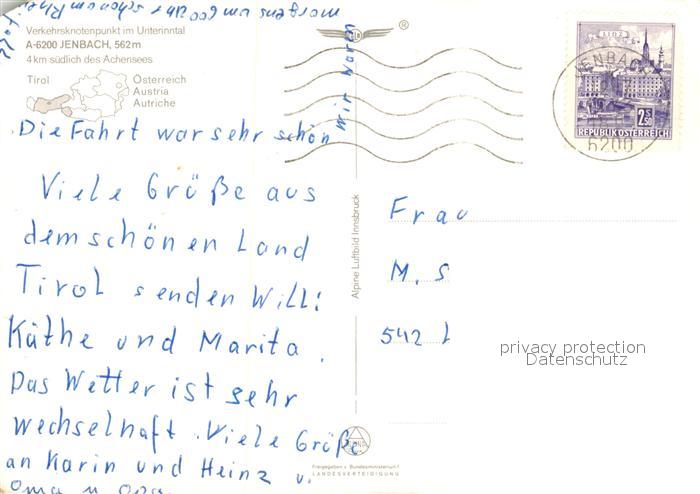 morgens um 600 Uhr schon am Rhein
Verkehrsknotenpunkt im Unterinntal
A-6200 JENBACH, 562m
4km südlich des Achensees
Tirol
Österreich
Austria
Autriche
Die Fahrt war sehr schön
wir waren
Viele Grüße aus
dem schönen Land
Tirol senden Willi
Käthe und Marita.
Das Wetter ist sehr
wechselhaft. Viele Grüße
an Karin und Heinz u.
Oma u Opa
Alpine Luftbild Innsbruck
Freigegeben v. Bundesministerium f.
LANDESVERTEIDIGUNG
LINZ
2.50
REPUBLIK ÖSTERREICH
JENBACH
6200
Frau
M. S
542 L
privacy protection
Datenschutz